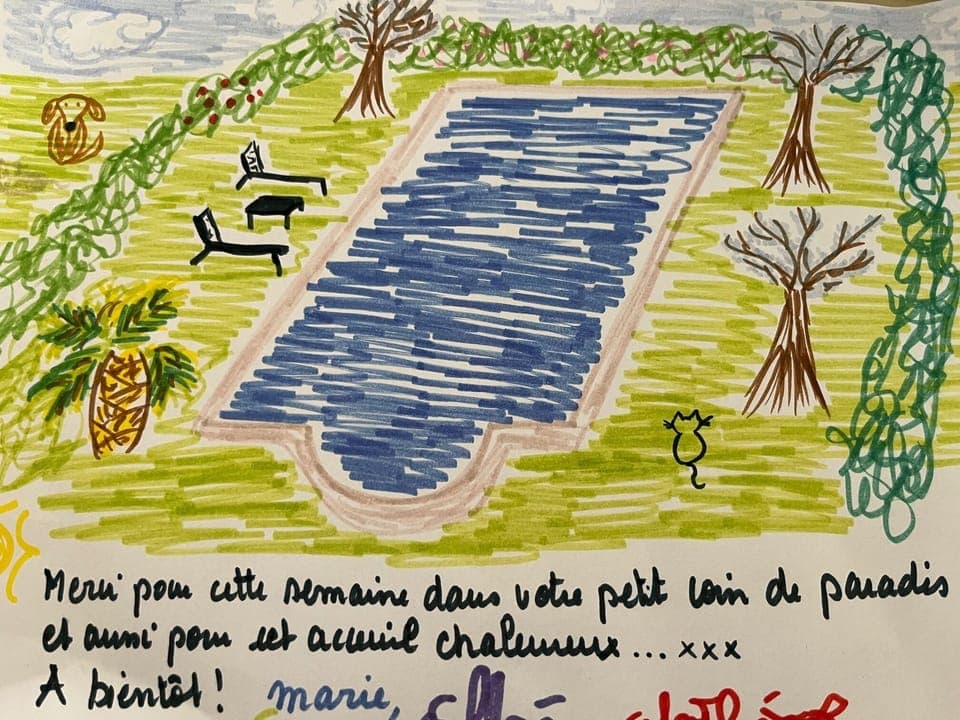 Merci pour cette semaine dans votre petit coin de paradis
et aussi pour cet accueil chaleureux ... xxx
A bientôt ! marie,